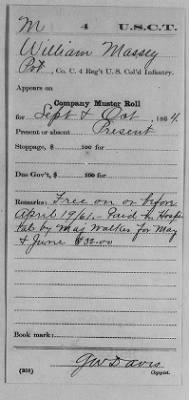 M 4 U.S.C.T.
William Massey
Pvt., Co. C. 4 Reg't U. S. Col'd Infantry.
Appears on
Company Muster Roll
for Sept & Oct, 1864.
Present or absent Present
Stoppage, $ 100 for
Due Gov't, $ 100 for
Remarks: Free on or before
April 19/61. Paid in Hospi
tal by Maj Walker for May
& June $32.00
Book mark:
G W Davis
(358) Copyist.